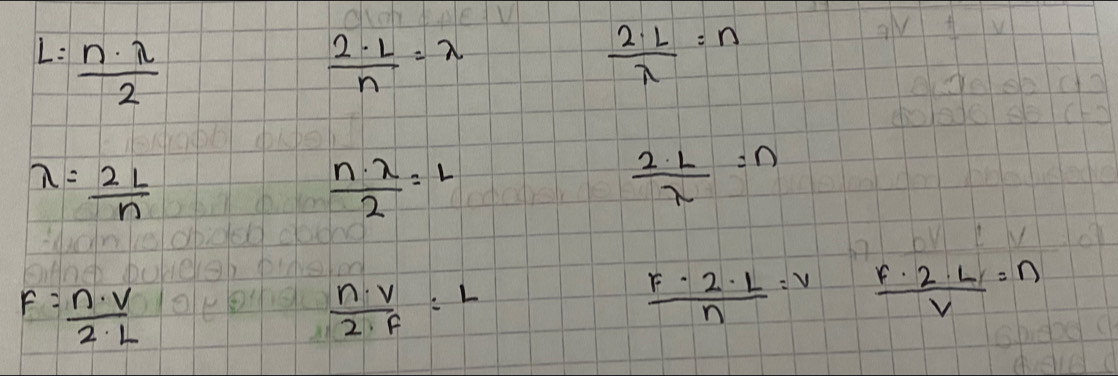 L = n · λ / 2    2 · L / n = λ    2 · L / λ = n
λ = 2 L / n    n · λ / 2 = L    2 · L / λ = n
F = n · v / 2 · L    n · v / 2 · F = L    F · 2 · L / n = v    F · 2 · L / v = n